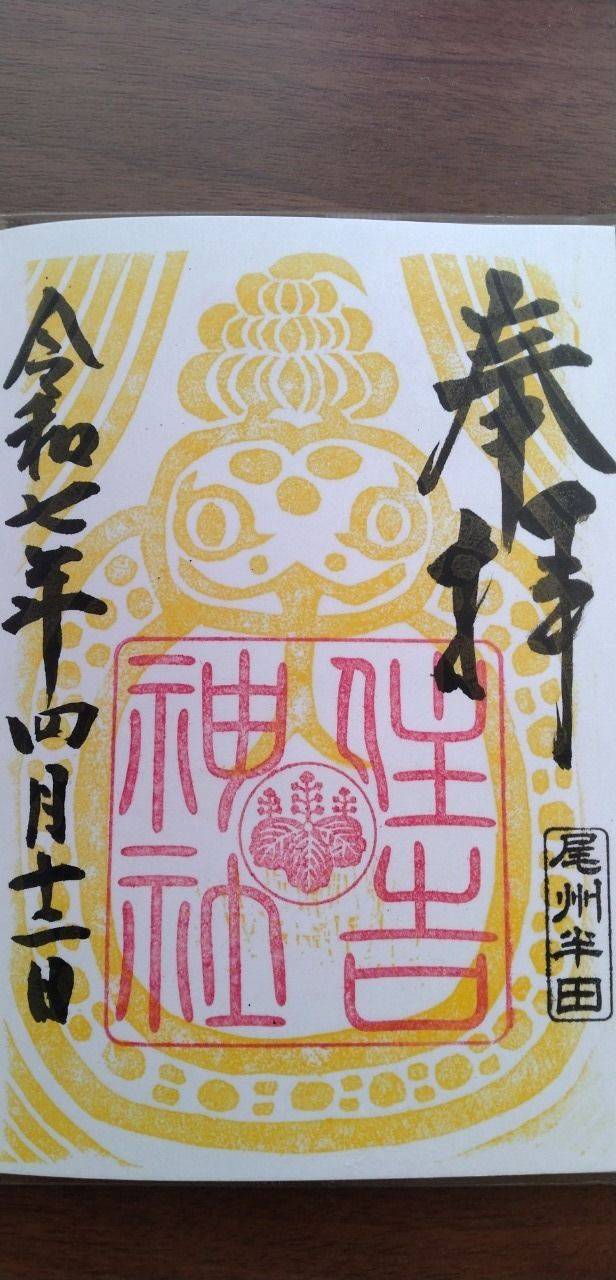 奉拝
尾州半田
住吉
神社
令和七年四月十二日